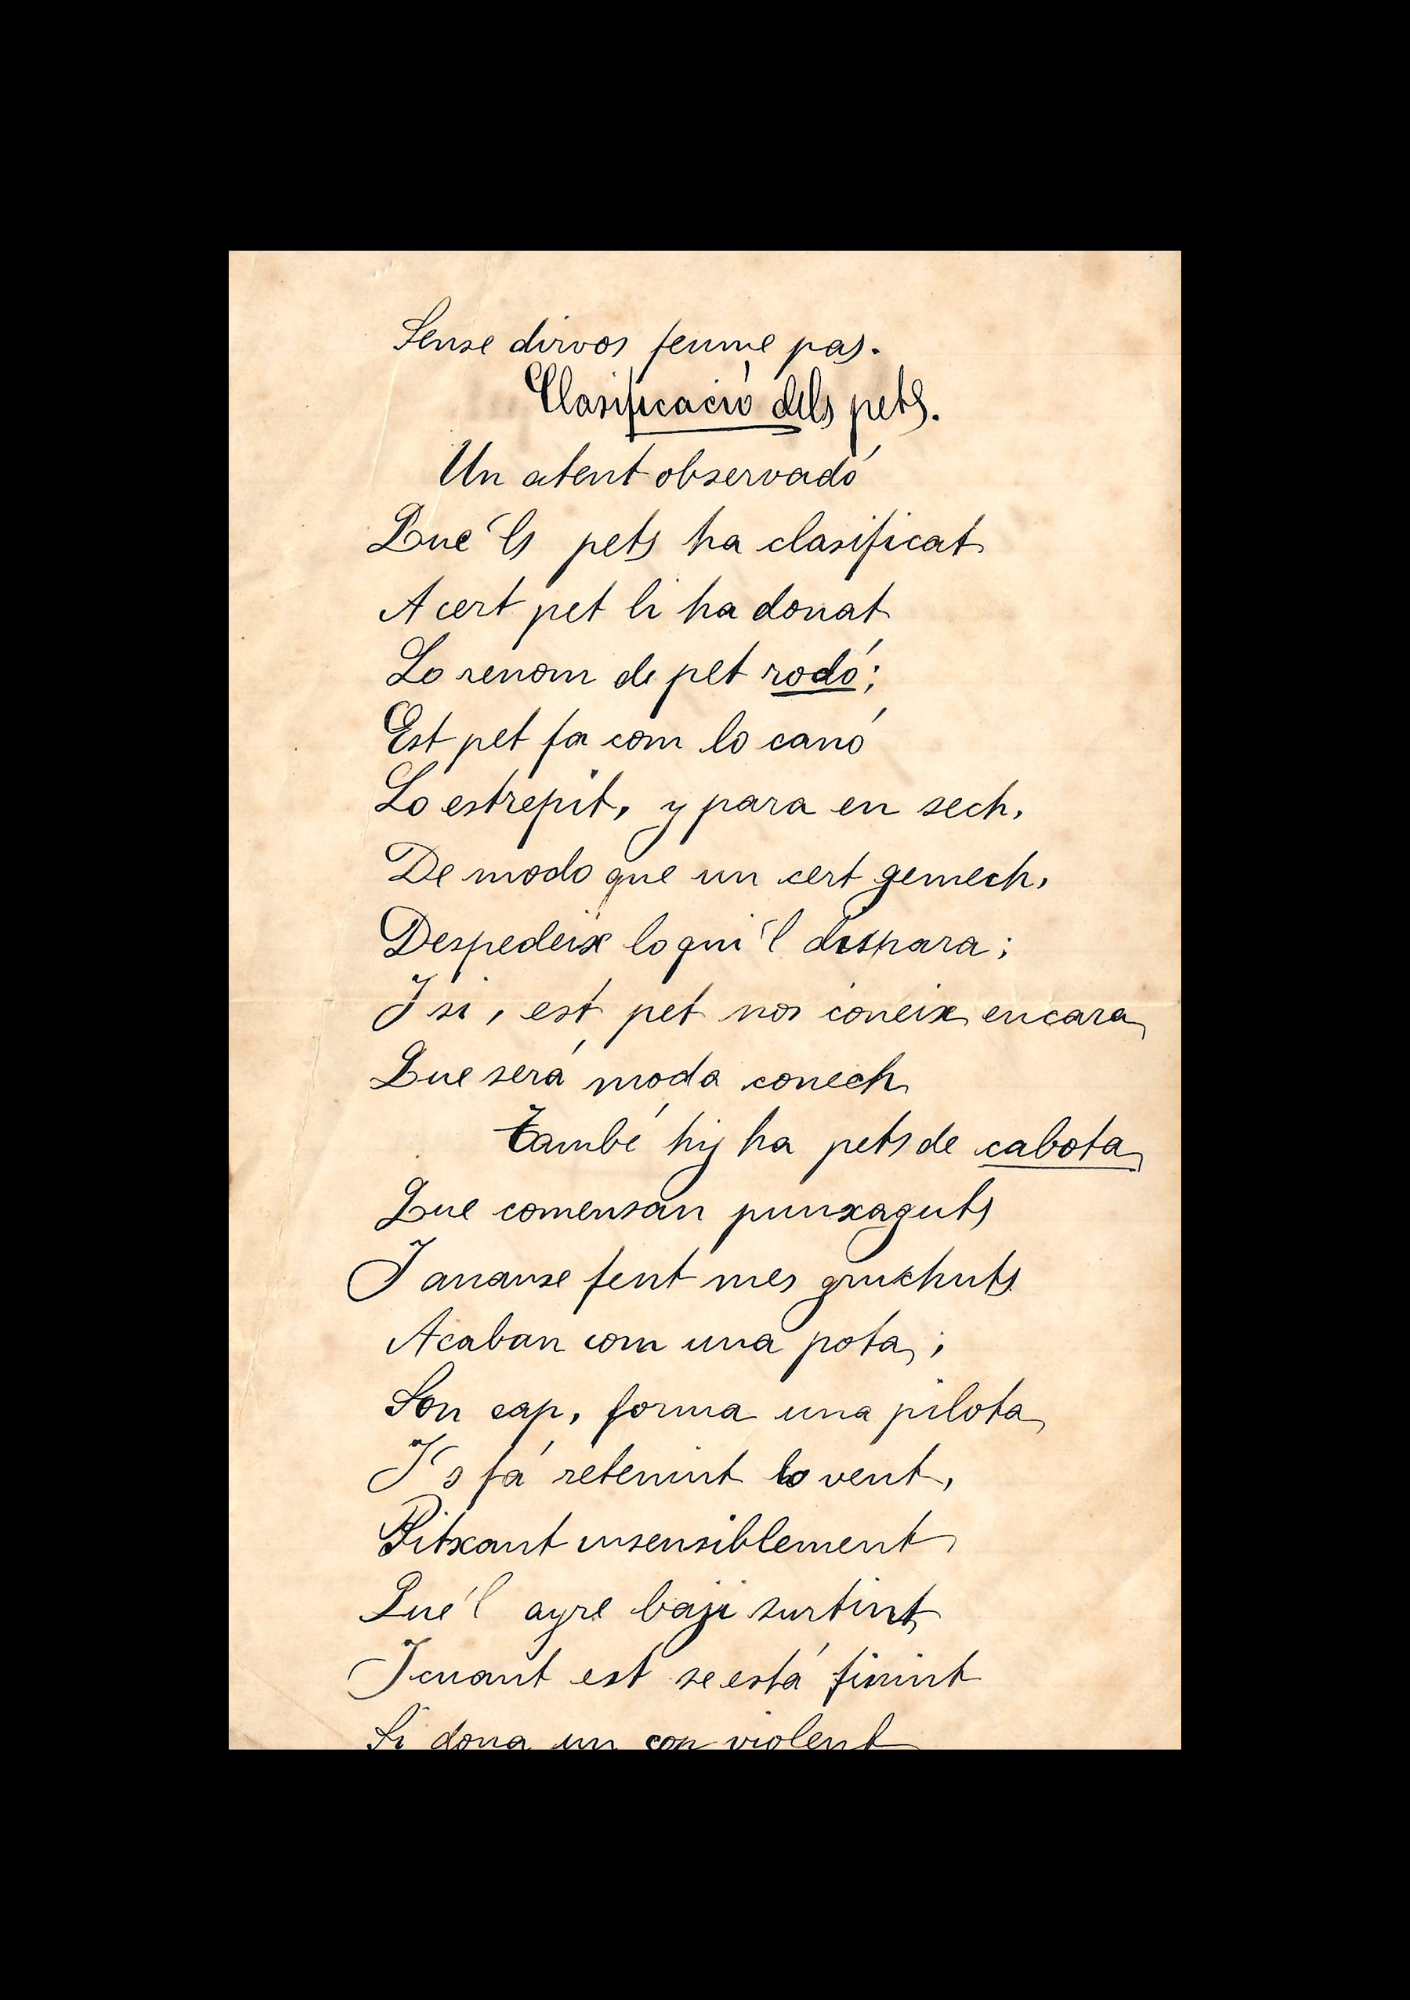 Sense dirvos feume pas.
Clasificació dels pets.
Un atent observadó
Que 'ls pets ha clasificat
A cert pet li ha donat
Lo renom de pet rodó;
Est pet fa com lo canó
Lo estrepit, y para en sech,
De modo que un cert gemech,
Despedeix lo qui 'l dispara;
I si, est pet nos coneix encara
Que será moda conech
També hi ha pets de cabota
Que comensan punxaguts
I ananse fent mes gruixhuts
Acaban com una pota;
Son cap, forma una pilota
I 's fá retenint lo vent,
Pitxant insensiblement
Que 'l ayre baji surtint
I cuant est se está finint
Si dona un cop violent